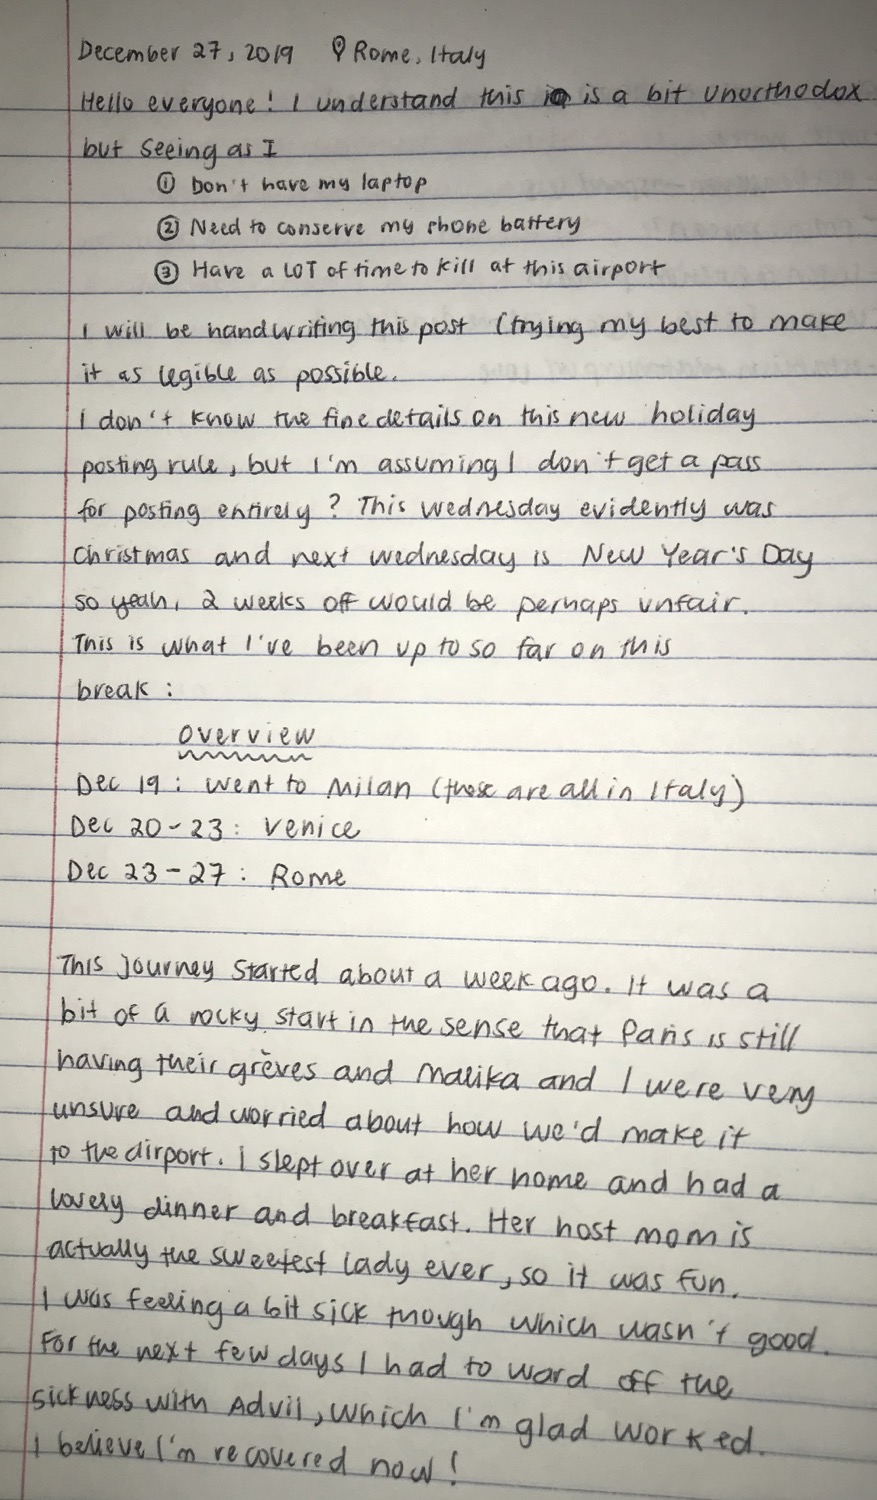 December 27, 2019 Rome, Italy
Hello everyone! I understand this is a bit unorthodox
but seeing as I
① Don't have my laptop
② Need to conserve my phone battery
③ Have a LOT of time to kill at this airport
I will be handwriting this post (trying my best to make
it as legible as possible.
I don't know the fine details on this new holiday
posting rule, but I'm assuming I don't get a pass
for posting entirely? This wednesday evidently was
Christmas and next wednesday is New Year's Day
so yeah, 2 weeks off would be perhaps unfair.
This is what I've been up to so far on this
break:
Overview
Dec 19: went to Milan (these are all in Italy)
Dec 20-23: Venice
Dec 23-27: Rome
This journey started about a week ago. It was a
bit of a rocky start in the sense that Paris is still
having their grèves and Malika and I were very
unsure and worried about how we'd make it
to the airport. I slept over at her home and had a
lovely dinner and breakfast. Her host mom is
actually the sweetest lady ever, so it was fun.
I was feeling a bit sick though which wasn't good.
For the next few days I had to ward off the
sickness with Advil, which I'm glad worked.
I believe I'm recovered now!